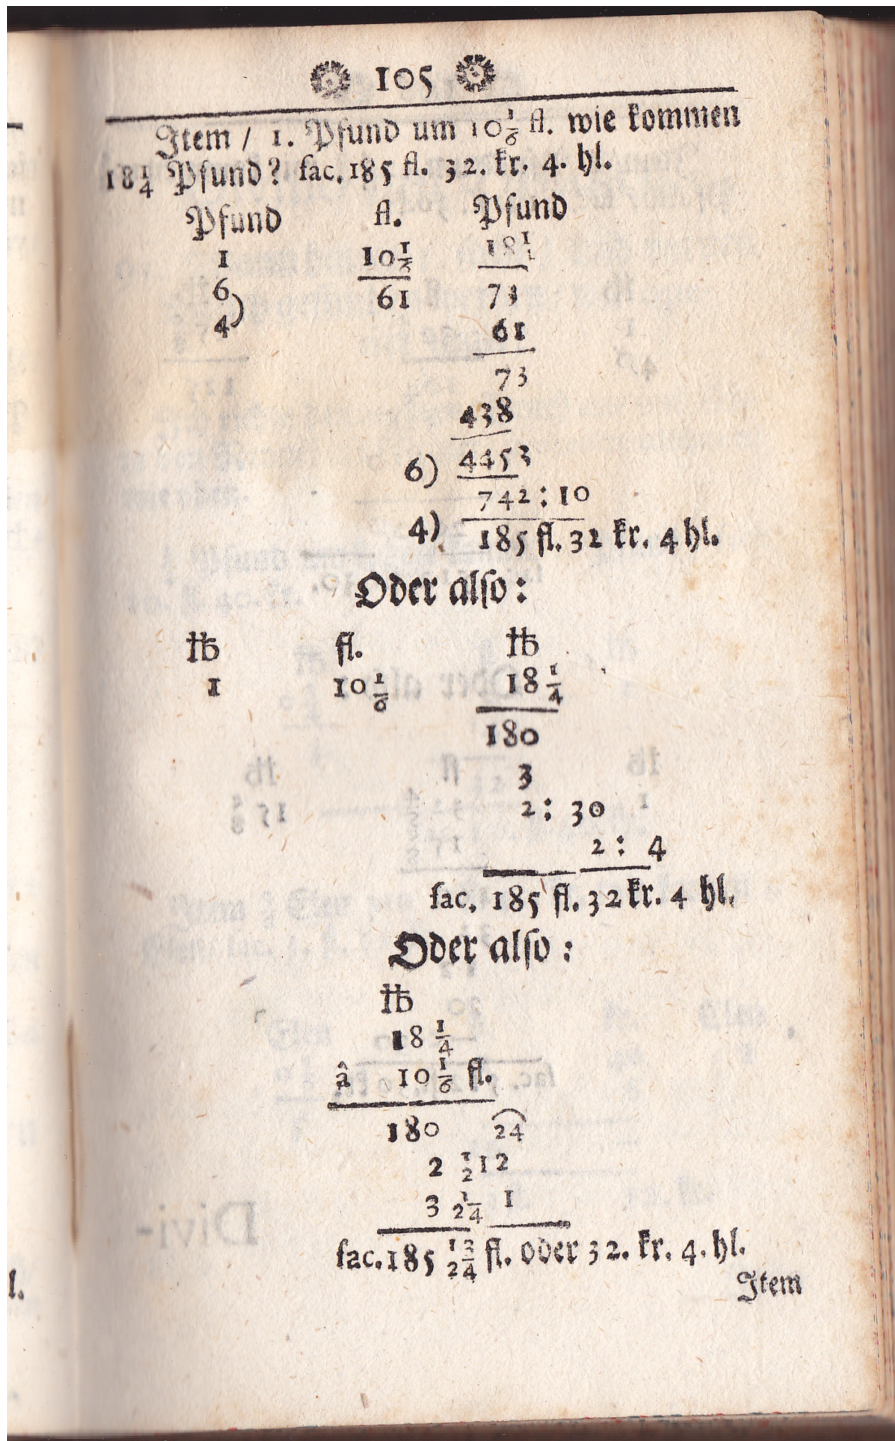 105
Item / 1. Pfund um 10 1/6 fl. wie kommen
18 1/4 Pfund? fac. 185 fl. 32. kr. 4. hl.
Pfund fl. Pfund
1 10 1/6 18 1/4
6 61 73
4) 61
73
438
6) 4453
742 : 10
4) 185 fl. 32 kr. 4 hl.
Oder also:
℔ fl. ℔
1 10 1/6 18 1/4
180
3
2 : 30
2 : 4
fac. 185 fl. 32 kr. 4 hl.
Oder also:
℔
18 1/4
â 10 1/6 fl.
180 24
2 1/2 12
3 1/24 1
fac. 185 13/24 fl. oder 32. kr. 4. hl.
Item
l.